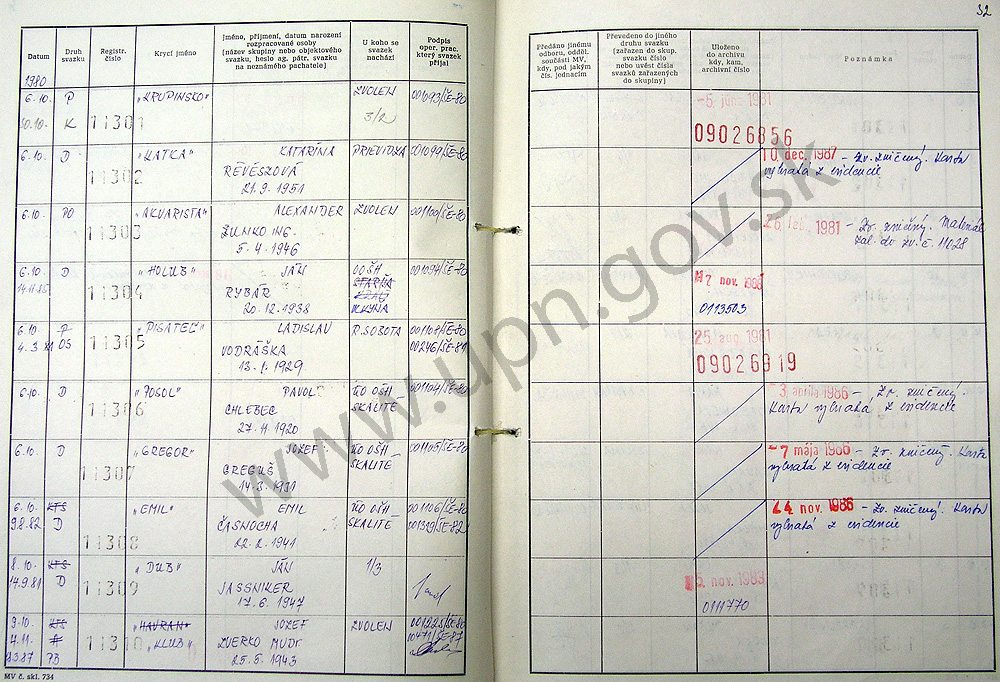 32
Datum
Druh svazku
Registr. číslo
Krycí jméno
Jméno, příjmení, datum narození
rozpracované osoby
(název skupiny nebo objektového
svazku, heslo ag. pátr. svazku
na neznámého pachatele)
U koho se svazek nachází
Podpis oper. prac. který svazek přijal
Předáno jinému
odboru, odděl.
součásti MV,
kdy, pod jakým
čís. jednacím
Převedeno do jiného
druhu svazku
(zařazen do skup.
svazku číslo
nebo uvést čísla
svazků zařazených
do skupiny)
Uloženo
do archivu
kdy, kam,
archivní číslo
Poznámka
1980
6.10. P 11301 "KRUPINSKO" ZVOLEN 001093/ŠE-80
10.10. K 3/2
1981
09026856
6.10. D 11302 "KATKA" KATARÍNA PRIEVIDZA 001099/ŠE-80
RÉVÉSZOVÁ
21.9. 1951
10. dec. 1987 – Zv. zničený. Karta
vybratá z evidencie
6.10. PO 11303 "AKVARISTA" ALEXANDER ZVOLEN 001100/ŠE-80
ZUNKO ING.
5. 4. 1946
26. feb. 1981 – Zv. zničený. Materiál
zal. do zv. č. 11028
6.10. D 11304 "HOLUB" JÁN OOŠH 001094/ŠE-80
14.11.85 RYBÁR
20. 12. 1938 VLKYŇA
nov. 1988
0113503
6.10. P 11305 "PISATEĽ" LADISLAV R.SOBOTA 001107/ŠE-80
4.3 OS VODRÁŠKA 00246/ŠE-81
13. 1. 1929
25. aug. 1981
09026919
6.10. D 11306 "POSOL" PAVOL KO OŠH 001104/ŠE-80
CHLEBEC SKALITÉ
27. 11. 1920
3. apríla 1986 – Zv. zničený.
Karta vybratá z evidencie
6.10. D 11307 "GREGOR" JOZEF KO OŠH 001105/ŠE-80
GREGUŠ SKALITÉ
14. 3. 1931
-7 mája 1986 – Zv. zničený. Karta
vybratá z evidencie
6.10. KTS 11308 "EMIL" EMIL KO OŠH 001106/ŠE-80
9.8.82 D ČASNOCHA SKALITÉ 001319/ŠE-82
22. 2. 1941
24. nov. 1986 – Zv. zničený. Karta
vybratá z evidencie
8.10. KTS 11309 "DUB" JÁN 1/3
14.9.81 D JASSNIKER
17. 6. 1947
nov. 1983
0111770
9.10. KTS 11310 "HAVRAN" JOZEF ZVOLEN 001225/ŠE-80
4.11. "KLUB" ZVERKO MUDr. 00471/ŠE-87
25. 5. 1943
MV č. skl. 734
www.upn.gov.sk